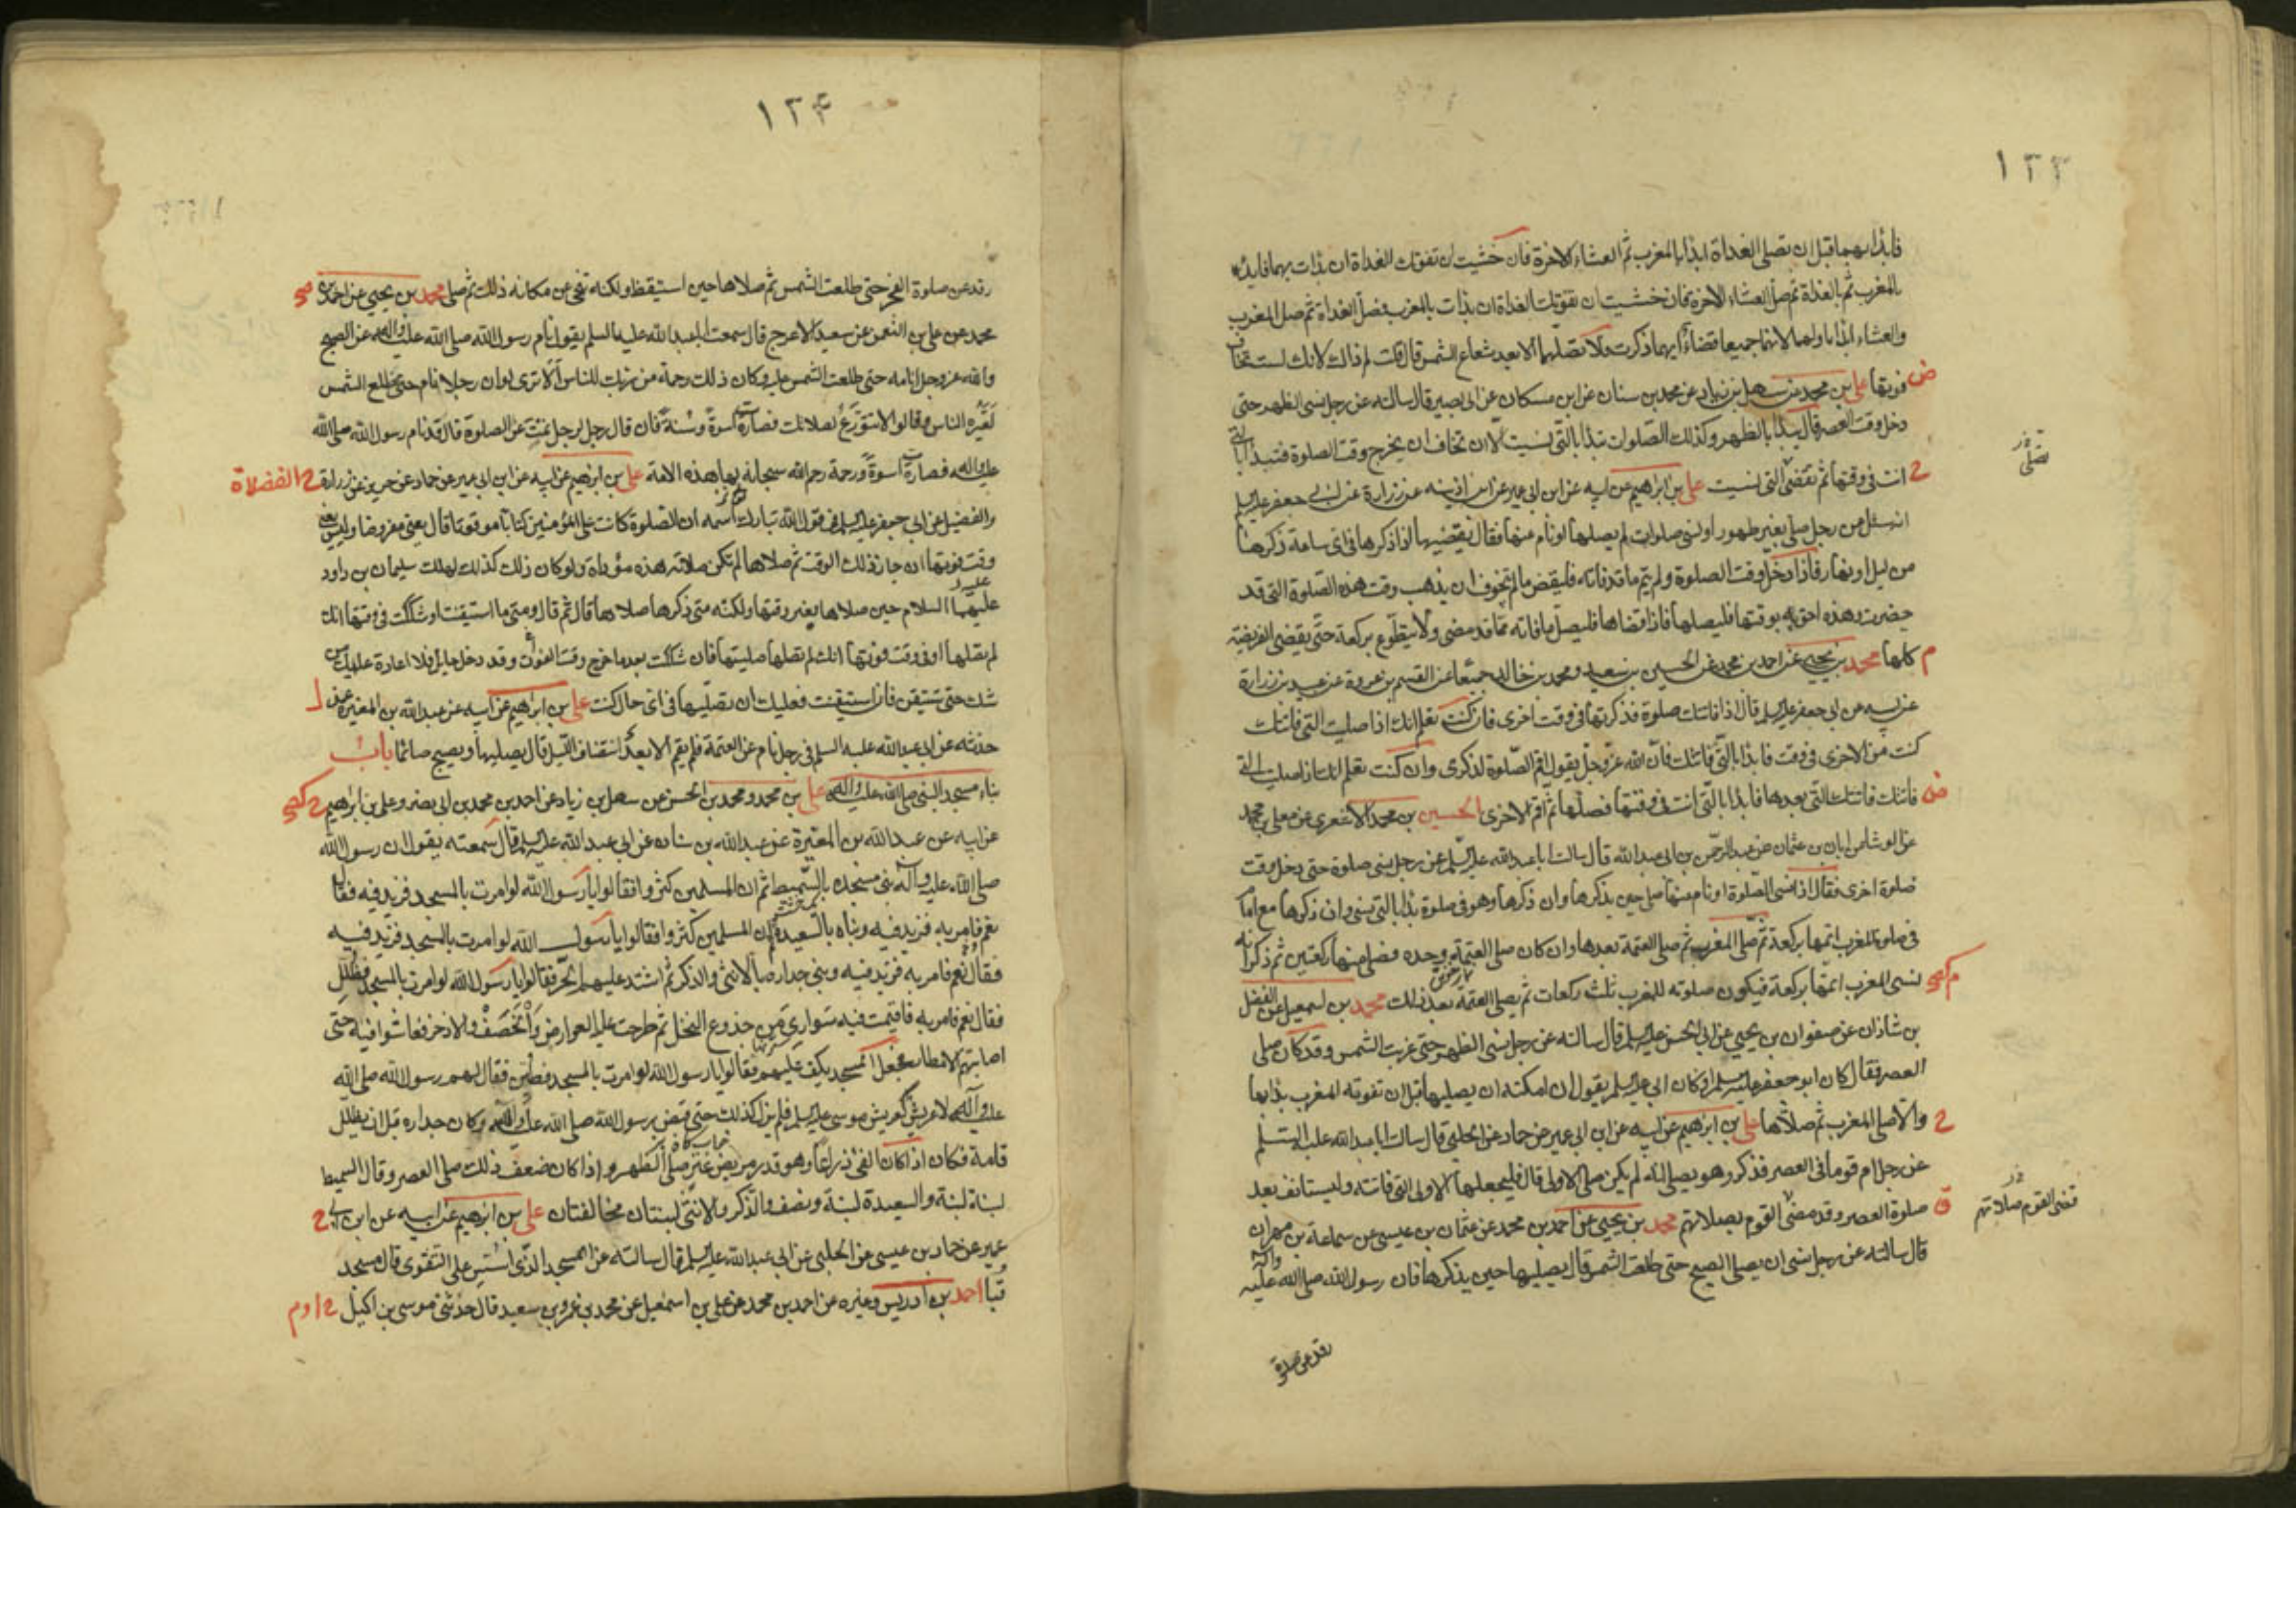 ١٣٣
فابدأ بهما قبل ان تصلى الغداة ابدأ بالمغرب ثم العشاء الاخرة فان خشيت ان تفوتك الغداة ان بدات بهما فابدأ
بالمغرب ثم بالغداة ثم صل العشاء الاخرة فان خشيت ان تفوتك الغداة ان بدات بالمغرب فصل الغداة ثم صل المغرب
والعشاء ابدأ باولهما لانهما جميعا قضاء ايهما ذكرت فلا تصلهما الا بعد شعاع الشمس قال قلت لم ذاك لانك لست تخاف
فوتها على بن محمد عن سهل بن زياد عن محمد بن سنان عن ابن مسكان عن ابى بصير قال سالته عن رجل نسى الظهر حتى ض
دخل وقت العصر قال يبدأ بالظهر وكذلك الصلوات تبدأ بالتى نسيت الا ان تخاف ان يخرج وقت الصلوة فتبدأ بالتى
تصلى
انت فى وقتها ثم تقضى التى نسيت على بن ابراهيم عن ابيه عن ابن ابى عمير عن ابن اذينه عن زرارة عن ابى جعفر عليه السلم
انه سئل عن رجل صلى بغير طهور او نسى صلوات لم يصلها او نام عنها فقال يقضيها اذا ذكرها فى اى ساعة ذكرها
من ليل او نهار فاذا دخل وقت الصلوة ولم يتم ما قد فاته فليقض ما لم يتخوف ان يذهب وقت هذه الصلوة التى قد
حضرت وهذه احق بوقتها فليصلها فاذا قضاها فليصل ما فاته مما قد مضى ولا يتطوع بركعة حتى يقضى الفريضة
كلها محمد بن يحيى عن احمد بن محمد عن الحسين بن سعيد ومحمد بن خالد جميعا عن القسم بن عروة عن عبيد بن زرارة م
عن ابيه عن ابى جعفر عليه السلم قال اذا فاتتك صلوة فذكرتها فى وقت اخرى فان كنت تعلم انك اذا صليت التى فاتتك
كنت من الاخرى فى وقت فابدأ بالتى فاتتك فان الله عز وجل يقول اقم الصلوة لذكرى وان كنت تعلم انك اذا صليت التى
فاتتك فاتتك التى بعدها فابدأ بالتى انت فى وقتها فصلها ثم اقم الاخرى الحسين بن محمد الاشعرى عن معلى بن محمد ض
عن الوشا عن ابان بن عثمان عن عبد الرحمن بن ابى عبد الله قال سالت ابا عبد الله عليه السلم عن رجل نسى صلوة حتى دخل وقت
صلوة اخرى فقال اذا نسى الصلوة او نام عنها صلى حين يذكرها وان ذكرها وهو فى صلوة بدأ بالتى نسى وان ذكرها مع امام
فى صلوة المغرب اتمها بركعة ثم صلى المغرب ثم صلى العتمة بعدها وان كان صلى العتمة وحده فصلى منها ركعتين ثم ذكر انه
نسى المغرب اتمها بركعة فيكون صلوته للمغرب ثلث ركعات ثم يصلى العتمة بعد ذلك محمد بن اسمعيل عن الفضل
بن شاذان عن صفوان بن يحيى عن ابى الحسن عليه السلم قال سالته عن رجل نسى الظهر حتى غربت الشمس وقد كان صلى
العصر فقال كان ابو جعفر عليه السلم او كان ابى عليه السلم يقول ان امكنه ان يصليها قبل ان تفوته المغرب بدأ بها
والا صلى المغرب ثم صلاها على بن ابراهيم عن ابيه عن ابن ابى عمير عن حماد عن الحلبى قال سالت ابا عبد الله عليه السلم
عن رجل ام قوما فى العصر فذكر وهو يصلى انه لم يكن صلى الاولى قال فليجعلها الاولى التى فاتته وليستانف بعد
صلوة العصر وقد مضى القوم بصلاتهم محمد بن يحيى عن احمد بن محمد عن عثمان بن عيسى عن سماعة بن مهران ق
قضى القوم صلاتهم
قال سالته عن رجل نسى ان يصلى الصبح حتى طلعت الشمس قال يصليها حين يذكرها فان رسول الله صلى الله عليه واله
رقد عن صلوة
١٣۴
رقد عن صلوة الفجر حتى طلعت الشمس ثم صلاها حين استيقظ ولكنه تنحى عن مكانه ذلك ثم صلى محمد بن يحيى عن احمد بن
محمد عن على بن النعمن عن سعيد الاعرج قال سمعت ابا عبد الله عليه السلم يقول نام رسول الله صلى الله عليه واله عن الصبح
والله عز وجل انامه حتى طلعت الشمس عليه وكان ذلك رحمة من ربك للناس الا ترى لو ان رجلا نام حتى تطلع الشمس
لعيره الناس وقالوا لا تتورع لصلاتك فصارت اسوة وسنة فان قال رجل لرجل نمت عن الصلوة قال قد نام رسول الله صلى الله
عليه واله فصارت اسوة ورحمة رحم الله سبحانه بها هذه الامة على بن ابرهيم عن ابيه عن ابن ابى عمير عن حماد عن حريز عن زرارة
والفضيل عن ابى جعفر عليه السلم فى قول الله تبارك اسمه ان الصلوة كانت على المؤمنين كتابا موقوتا قال يعنى مفروضا وليس يعنى
وقت فوتها ان جاز ذلك الوقت ثم صلاها لم تكن صلاته هذه مؤداة ولو كان ذلك كذلك لهلك سليمان بن داود
عليهما السلام حين صلاها بغير وقتها ولكنه متى ذكرها صلاها قال ثم قال ومتى ما استيقنت او شككت فى وقتها انك
لم تصلها او فى وقت فوتها انك لم تصلها صليتها فان شككت بعد ما خرج وقت الفوت وقد دخل حايل فلا اعادة عليك من
شك حتى تستيقن فان استيقنت فعليك ان تصليها فى اى حال كنت على بن ابراهيم عن ابيه عن عبد الله بن المغيرة عمن
حدثه عن ابى عبد الله عليه السلم فى رجل نام عن العتمة فلم يقم الا بعد انتصاف الليل قال يصليها ويصبح صائما باب
بناء مسجد النبى صلى الله عليه واله على بن محمد ومحمد بن الحسن عن سهل بن زياد عن احمد بن محمد بن ابى نصر وعلى بن ابراهيم
عن ابيه عن عبد الله بن المغيرة عن عبد الله بن سنان عن ابى عبد الله عليه السلم قال سمعته يقول ان رسول الله
صلى الله عليه وآله بنى مسجده بالسميط ثم ان المسلمين كثروا فقالوا يا رسول الله لو امرت بالمسجد فزيد فيه فقال
نعم فامر به فزيد فيه وبناه بالسعيدة ثم ان المسلمين كثروا فقالوا يا رسول الله لو امرت بالمسجد فزيد فيه
فقال نعم فامر به فزيد فيه وبنى جداره بالانثى والذكر ثم اشتد عليهم الحر فقالوا يا رسول الله لو امرت بالمسجد فظلل
فقال نعم فامر به فاقيمت فيه سوارى من جذوع النخل ثم طرحت عليه العوارض والخصف والاذخر فعاشوا فيه حتى
اصابتهم الامطار فجعل المسجد يكف عليهم فقالوا يا رسول الله لو امرت بالمسجد فطين فقال لهم رسول الله صلى الله
عليه وآله لا عريش كعريش موسى عليه السلم فلم يزل كذلك حتى قبض رسول الله صلى الله عليه واله وكان جداره قبل ان يظلل
قامة فكان اذا كان الفئ ذراعا وهو قدر مربض عنز صلى الظهر واذا كان ضعف ذلك صلى العصر وقال السميط
لبنة لبنة والسعيدة لبنة ونصف والذكر والانثى لبنتان مخالفتان على بن ابرهيم عن ابيه عن ابن ابى
عمير عن حماد بن عيسى عن الحلبى عن ابى عبد الله عليه السلم قال سالته عن المسجد الذى اسس على التقوى قال مسجد
قبا احمد بن ادريس وغيره عن احمد بن محمد عن على بن اسمعيل عن محمد بن عمرو بن سعيد قال حدثنى موسى بن اكيل